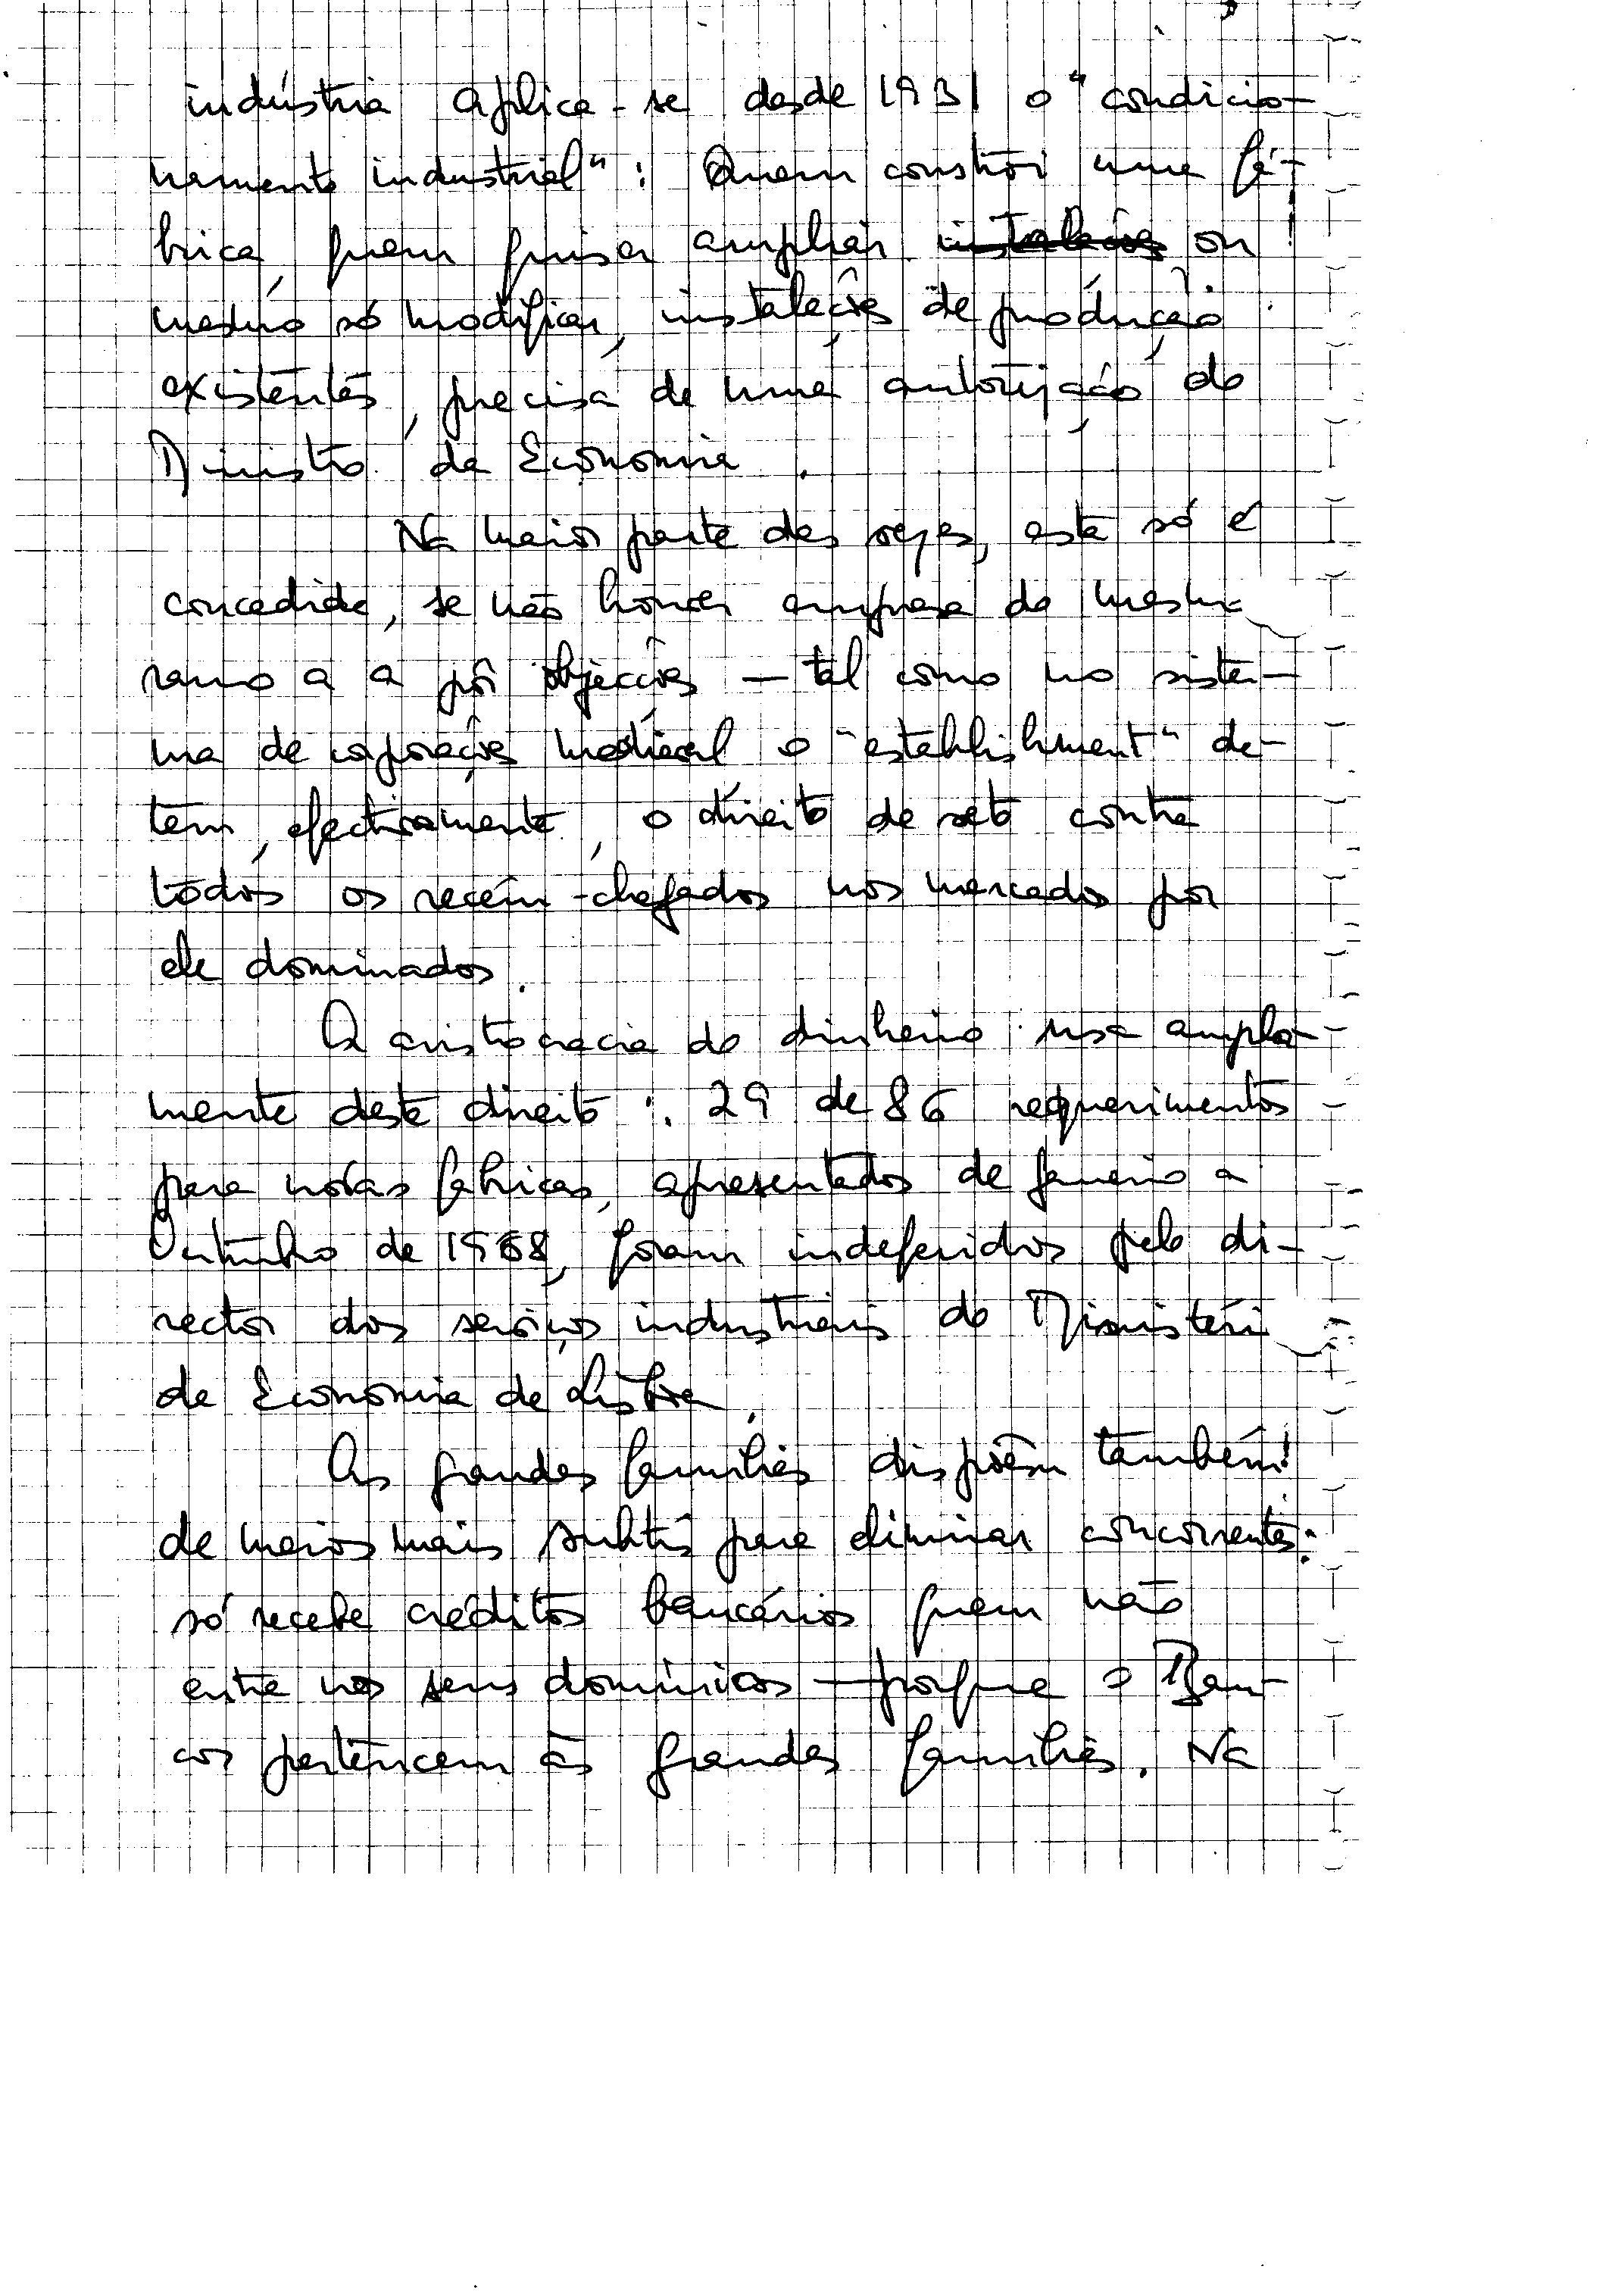 indústria aplica-se desde 1931 o "condicio-
namento industrial": Quem constrói uma fá-
brica, quem quiser ampliar ou
mesmo só modificar, instalações de produção
existentes, precisa de uma autorização do
Ministro da Economia.
Na maior parte das vezes, esta só é
concedida, se não houver empresa do mesmo
ramo a a pôr objecções – tal como no siste-
ma de corporações medieval o "establishment" de-
tem, efectivamente, o direito de veto contra
todos os recém-chegados nos mercados por
ele dominados.
A aristocracia do dinheiro usa ampla-
mente deste direito: 29 de 86 requerimentos
para novas fábricas, apresentados de Janeiro a
Outubro de 1968, foram indeferidos pelo di-
rector dos serviços industriais do Ministério
de Economia de Lisboa.
As grandes famílias dispõem também
de meios mais subtis para eliminar concorrentes:
só recebe créditos bancários quem não
entre nos seus domínios – porque o Ban-
cos pertencem às grandes famílias. Na